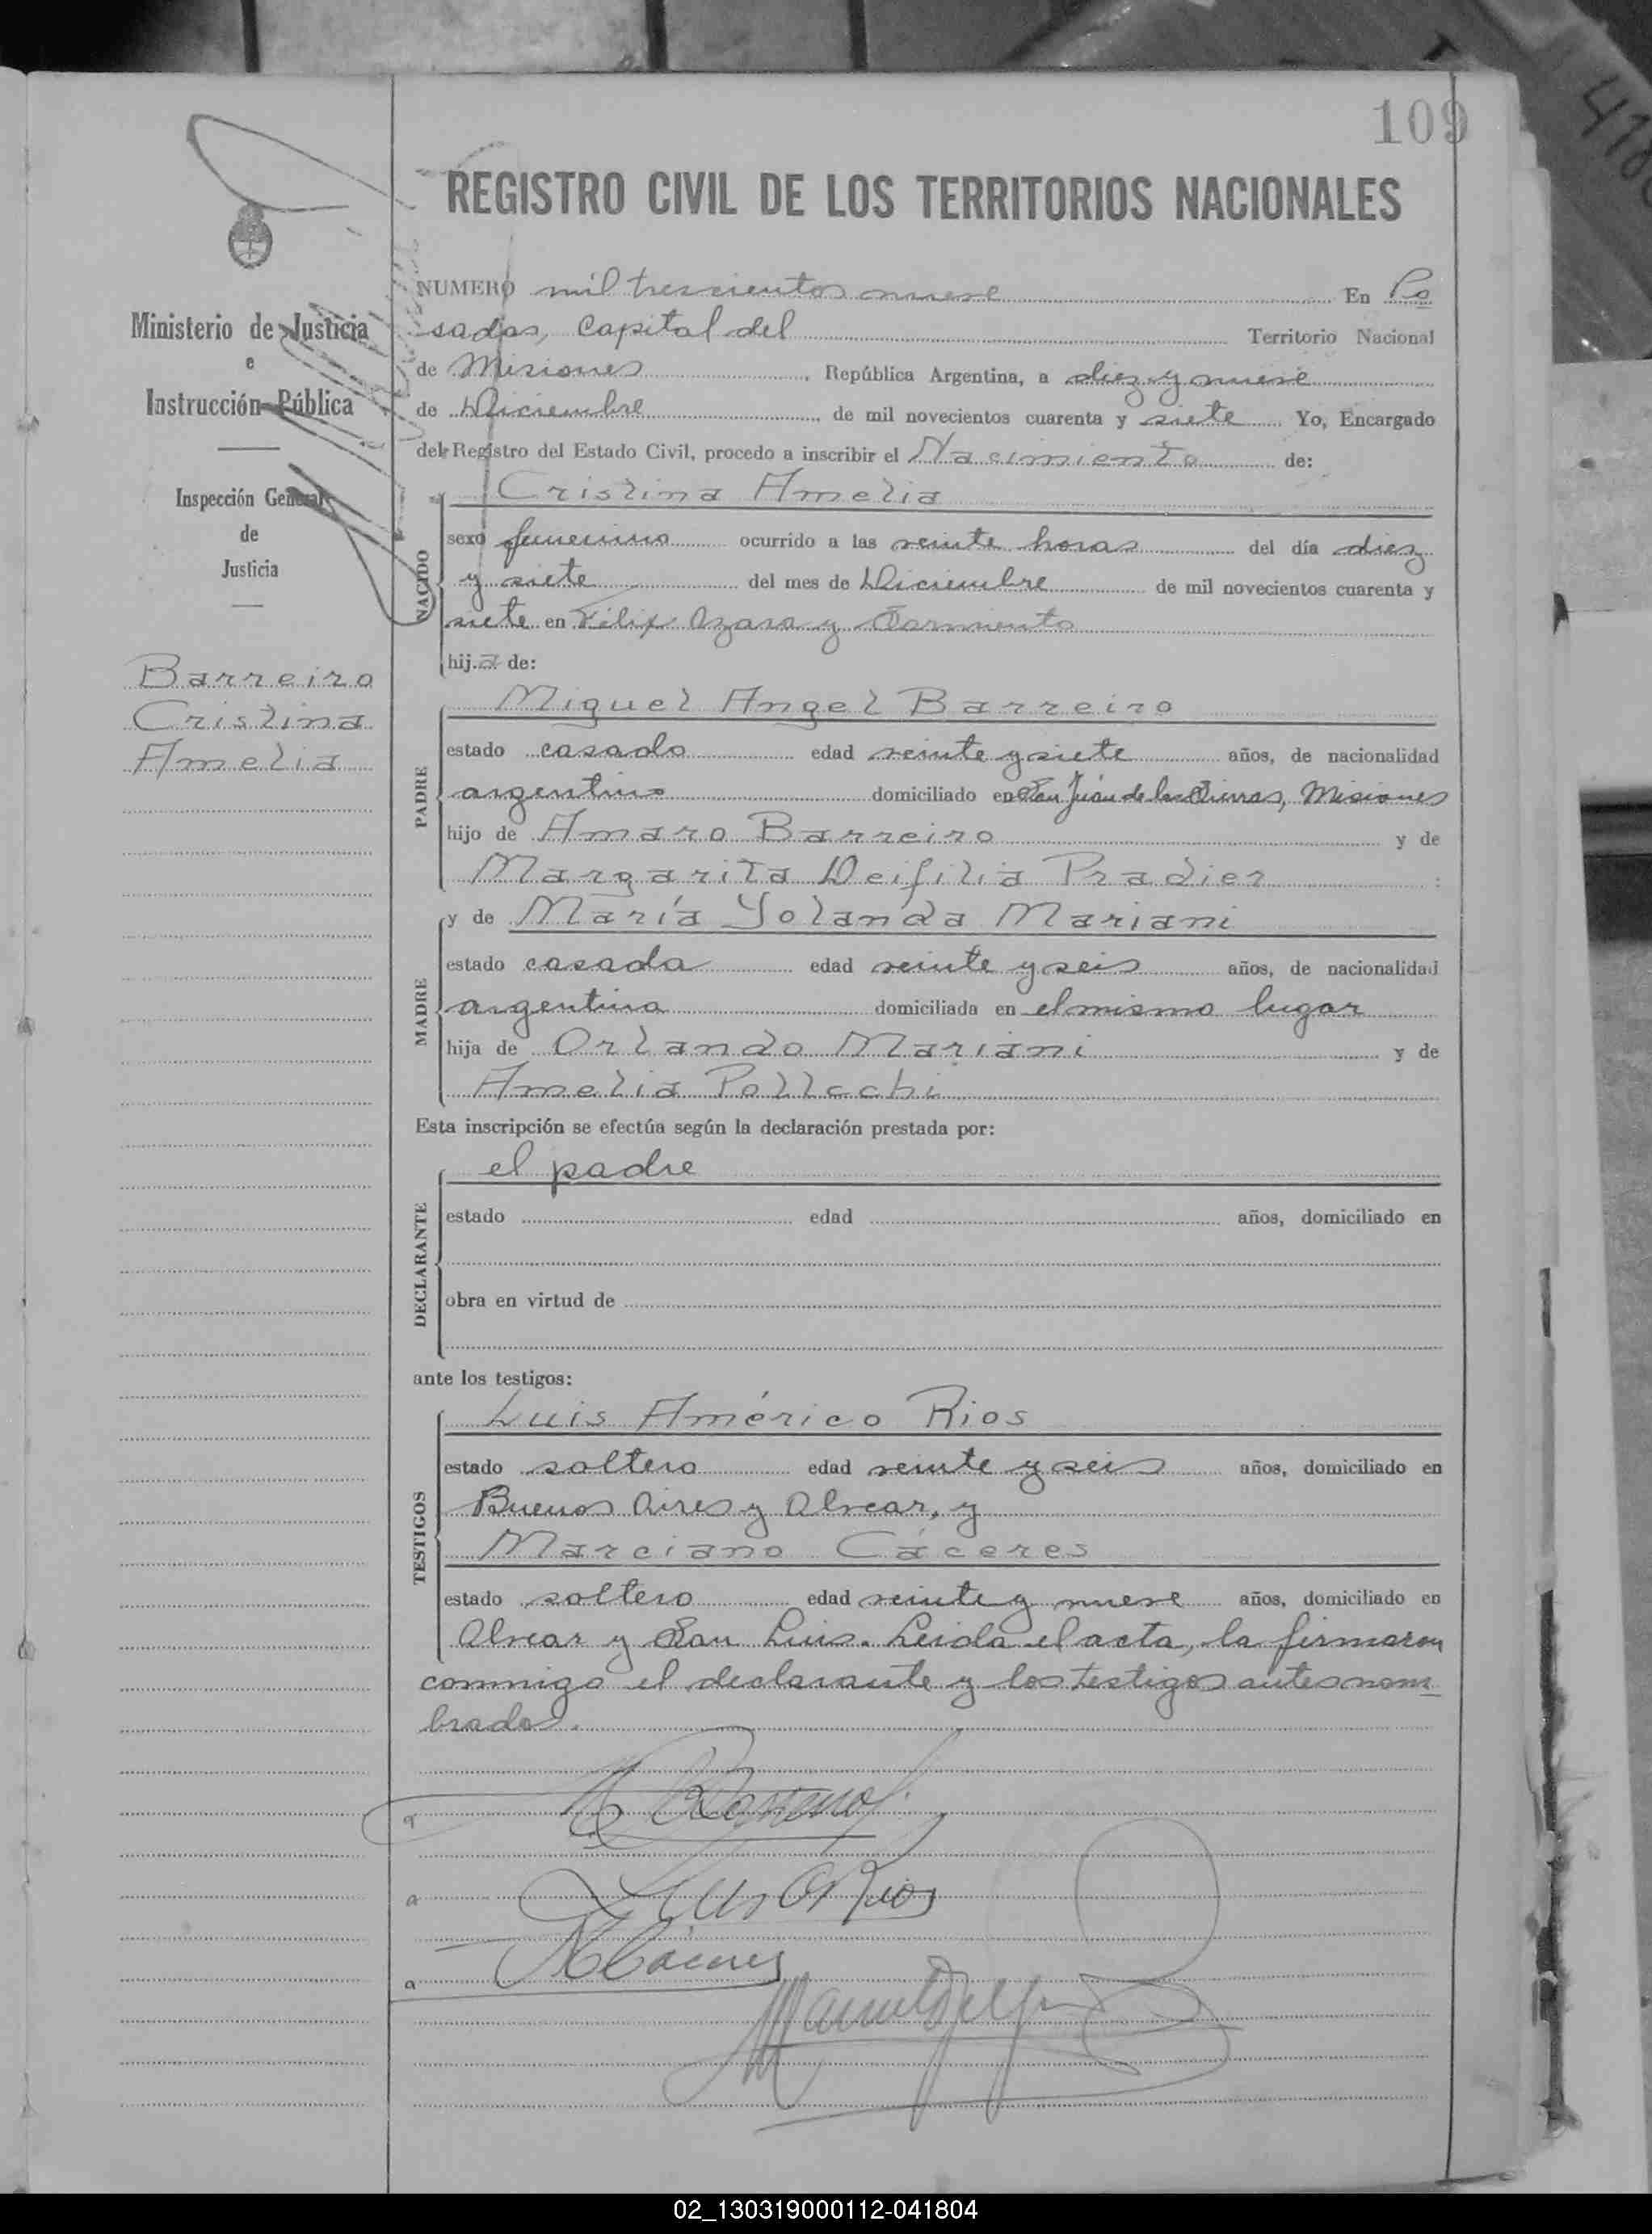 109
REGISTRO CIVIL DE LOS TERRITORIOS NACIONALES
Ministerio de Justicia
e
Instrucción Pública
Inspección General
de
Justicia
Barreiro
Cristina
Amelia
NUMERO mil trescientos nueve En Po
sadas, Capital del Territorio Nacional
de Misiones, República Argentina, a diez y nueve
de Diciembre de mil novecientos cuarenta y siete Yo, Encargado
del Registro del Estado Civil, procedo a inscribir el Nacimiento de:
NACIDO
Cristina Amelia
sexo femenino ocurrido a las veinte horas del día diez
y siete del mes de Diciembre de mil novecientos cuarenta y
siete en Félix Azara y Sarmiento
hija de:
PADRE
Miguel Angel Barreiro
estado casado edad veinte y siete años, de nacionalidad
argentino domiciliado en San Juan de las Sierras, Misiones
hijo de Amaro Barreiro y de
Margarita Deifilia Pradier
MADRE
y de María Yolanda Mariani
estado casada edad veinte y seis años, de nacionalidad
argentina domiciliada en el mismo lugar
hija de Orlando Mariani y de
Amelia
Esta inscripción se efectúa según la declaración prestada por:
DECLARANTE
el padre
estado edad años, domiciliado en
obra en virtud de
ante los testigos:
TESTIGOS
Luis Américo Rios
estado soltero edad veinte y seis años, domiciliado en
Buenos Aires y Alvear, y
Marciano Cáceres
estado soltero edad veinte y nueve años, domiciliado en
Alvear y San Luis. Leida el acta, la firmaron
conmigo el declarante y los testigos antes nom
brados.
a Barreiro
a Luis A Rios
a M Cáceres
02_130319000112-041804